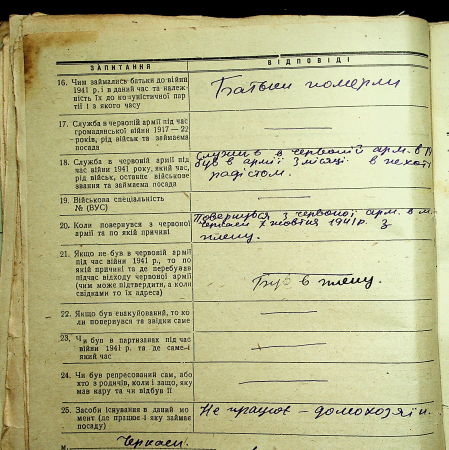 ЗАПИТАННЯ
ВІДПОВІДІ
16. Чим займались батьки до війни
1941 р. і в даний час та належ-
ність їх до комуністичної пар-
тії і з якого часу
Батьки померли
17. Служба в червоній армії під час
громадянської війни 1917 — 22
років, рід військ та займаєма
посада
18. Служба в червоній армії під
час війни 1941 року, який час,
рід військ, останнє військове
звання та займаєма посада
Служив в червоній арм. в
був в армії 3 місяці. в пехоті
радістом.
19. Військова спеціальність
№ (ВУС)
20. Коли повернувся з червоної
армії та по якій причині
Повернувся з червоної арм. в м.
Черкаси жовтня 1941 р. з
плену.
21. Якщо не був в червоній армії
під час війни 1941 р., то по
якій причині та де перебував
підчас відходу червоної армії
(чим може підтвердити, а коли
свідками то їх адреса)
Був в плену.
22. Якщо був евакуйований, то ко-
ли повернувся та звідки саме
23. Чи був в партизанах під час
війни 1941 р. та де саме і
який час
24. Чи був репресований сам, або
хто з родичів, коли і защо, яку
мав кару та чи відбув її
25. Засоби існування в даний мо-
мент (де працює і яку займає
посаду)
Не працює – домохозяін.
м. Черкаси.